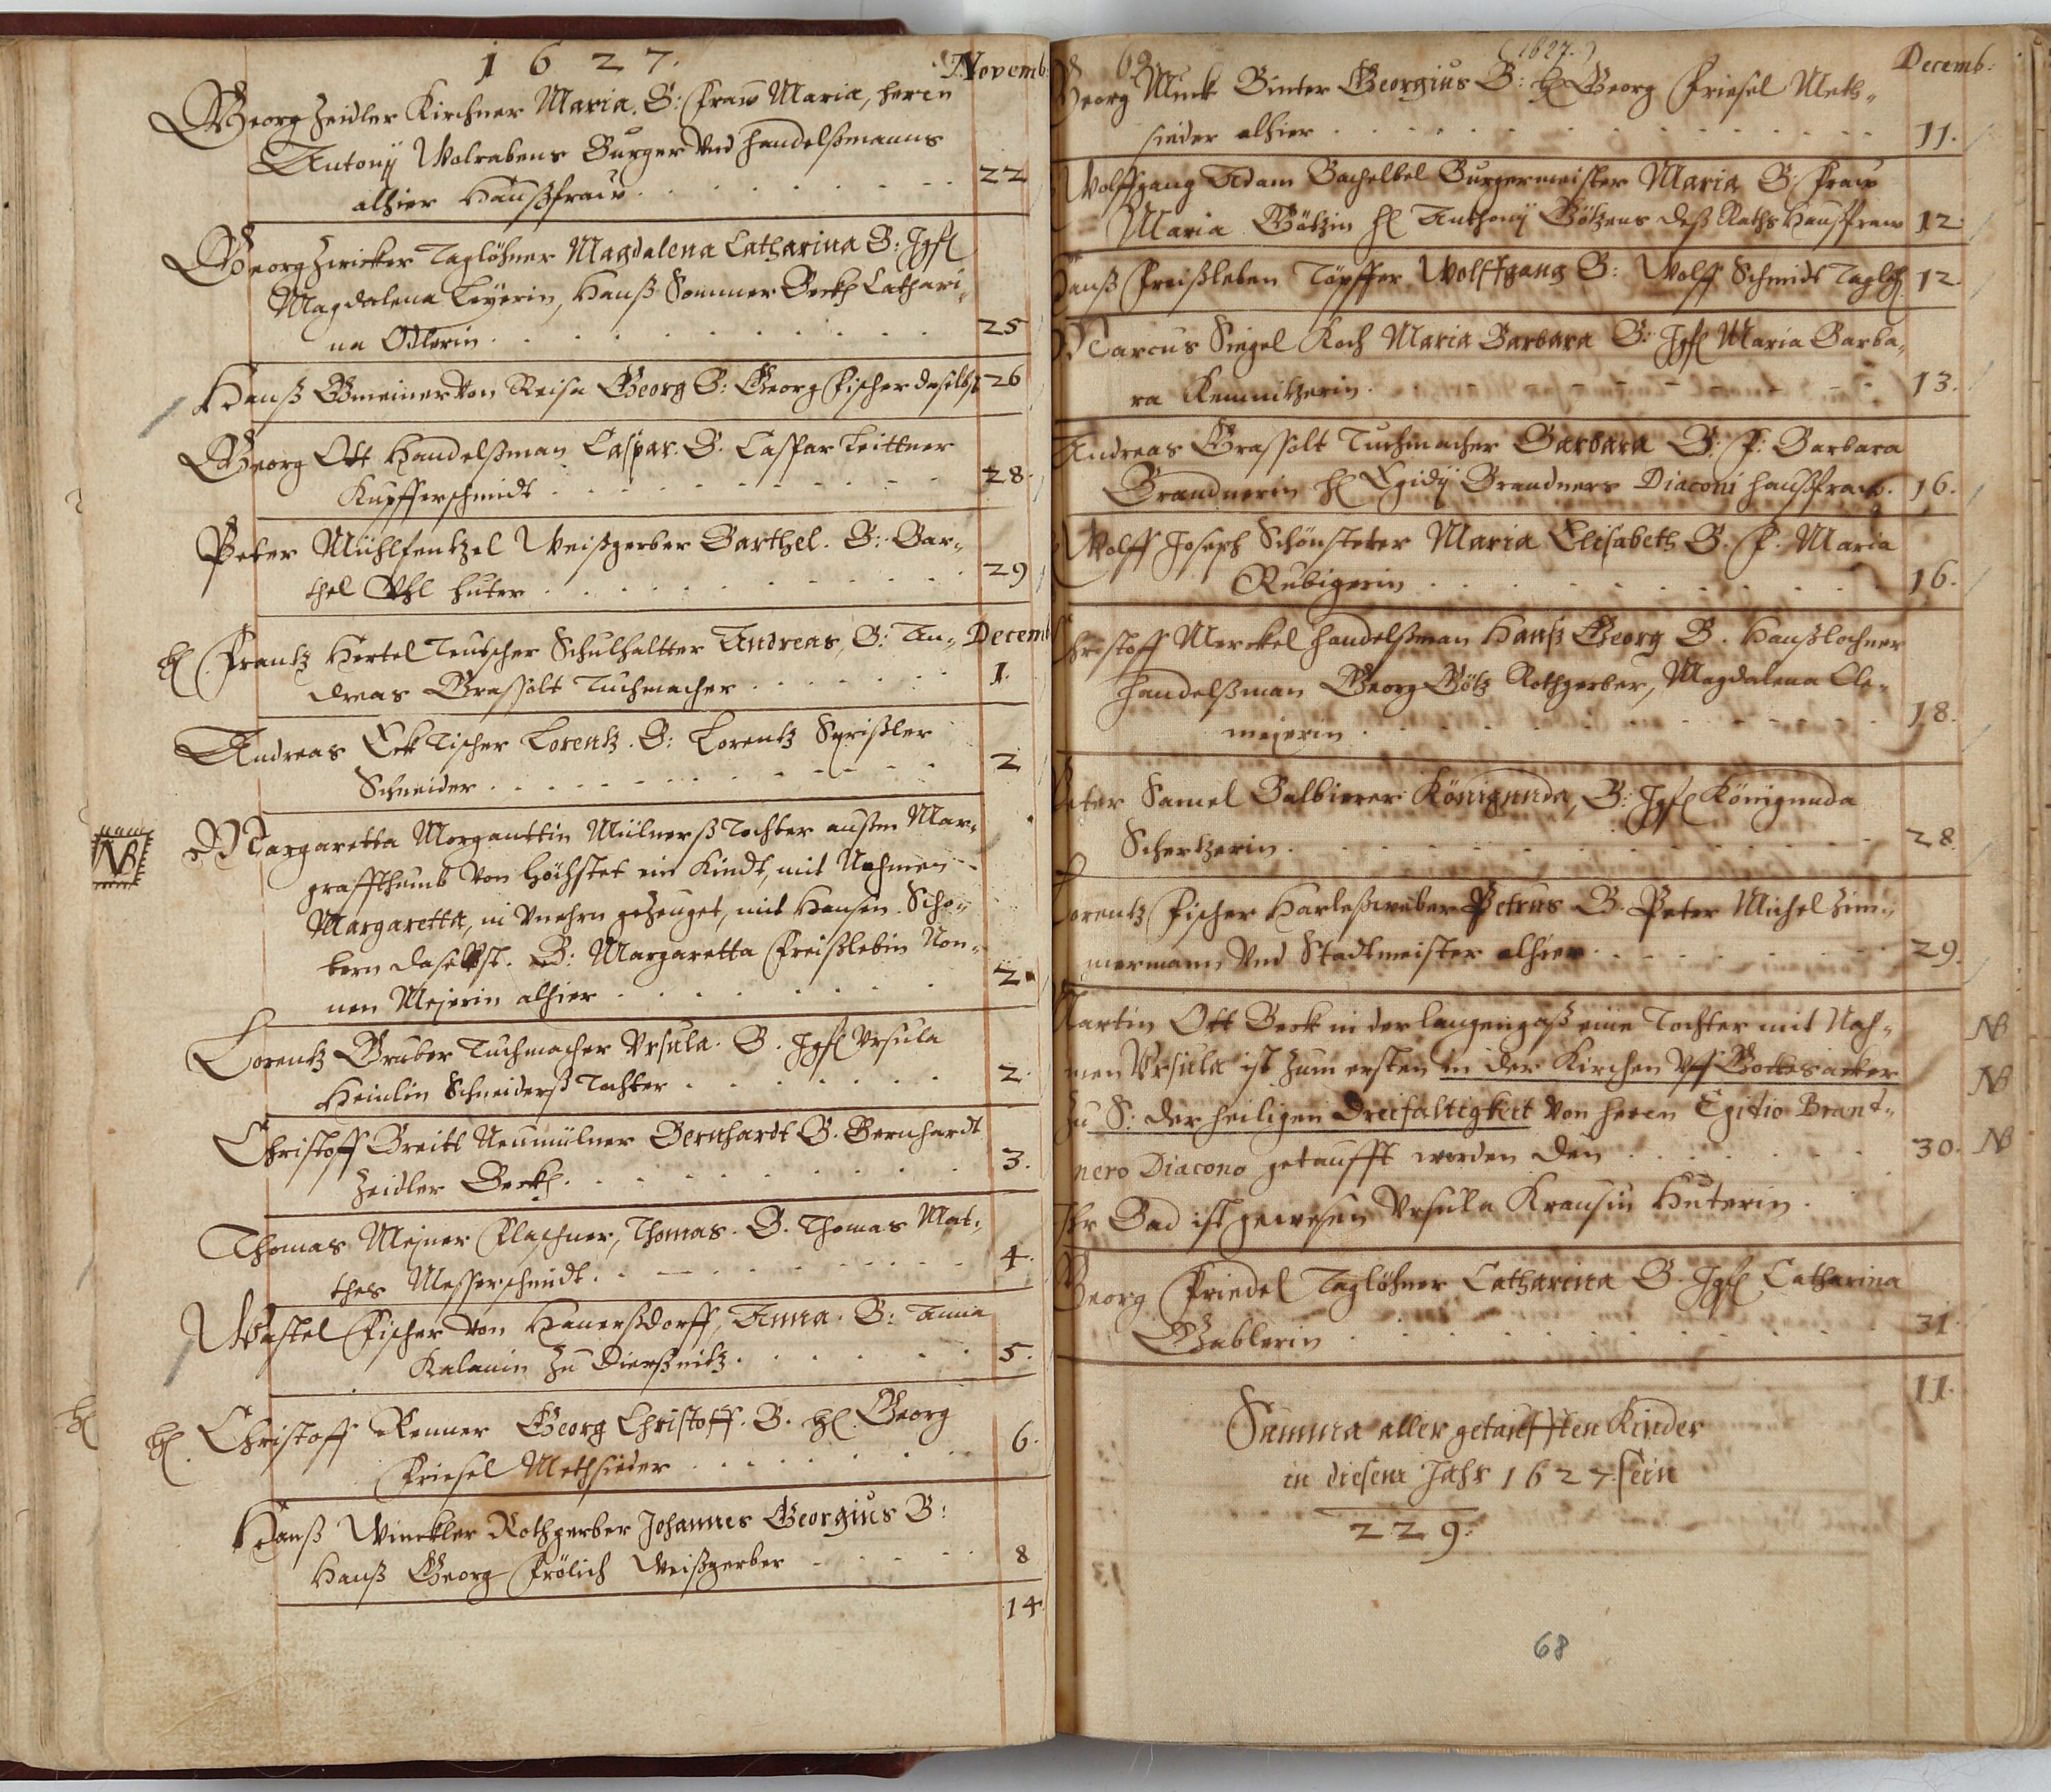 1627. Novemb:
Georg Zeidler Kirchner Maria. G: Fraw Maria, herrn
Antonÿ Wolrabens Burger Vnd Handelßmanns
alhier Haußfraw 22
Georg Zwicker Taglöhner Magdalena Catharina G: Jgfl
Magdalena Leÿerin, Hanß Sommer Beckh Cathari-
na Ottlerin 25
Hanß Gmeiner von Reisa Georg G: Georg Fischer daselbst 26
Georg Ott Handelßman Caspar. G. Caspar Leittner
Kupfferschmidt 28.
Peter Mühlfentzel Weißgerber Barthel. G: Bar-
thel Vhl huter 29
hl Frantz Hertel Teutscher Schulhaltter Andreas, G: An- Decemb
dreas Grassolt Tuchmacher 1.
Andreas Eck Tischer Lorentz. G: Lorentz Sprißler
Schneider 2
NB Margaretta Morganttin Müllnerß Tochter außm Mar-
graffthumb von Höchstet ein Kindt, mit Nahmen
Margaretta, in Vnehrn gezeuget, mit Hansen Scho-
bern daselbst. G: Margaretta Freißlebin Non-
nen Mejerin alhier 2
Lorentz Gruber Tuchmacher Vrsula. G. Jgfl Vrsula
Heinlin Schneiderß Tochter 2.
Christoff Breitt Neumülner Bernhardt G. Bernhardt
Zeidler Beckh 3.
Thomas Mejner Flaschner, Thomas. G. Thomas Mat-
thes Messerschmidt 4.
Wastel Fischer von Hauerßdorff, Anna. G: Anna
Kalanin zu Dierßnitz 5.
hl Christoff Renner Georg Christoff. G. hl. Georg
Friesel Methsieder 6.
Hanß Winckler Rothgerber Johannes Georgius G:
Hanß Georg Frölich Weißgerber 8
14.
(1627.) Decemb:
Georg Münk Binter Georgius G: hl Georg Friesel Meth-
sieder alhier 11.
Wolffgang Adam Bachelbel Burgermeister Maria G: Fraw
Maria Götzin hl Anthonÿ Götzens deß Raths Haußfraw 12
Hanß Freißleben Töpffer Wolffgang G: Wolff Schmidt Taglöh 12.
Marcus Siegel Koch Maria Barbara G: Jgfl Maria Barba-
ra Kemnitzerin 13.
Andreas Grassolt Tuchmacher Barbara G: F: Barbara
Brandnerin hl Egidÿ Brandners Diaconi haußfraw. 16.
Wolff Joseph Schönsteter Maria Elisabeth G. F. Maria
Rubigerin 16.
Christoff Merckel Handelßman Hanß Georg G. Hanß Lochner
Handelßman Georg Götz Rothgerber, Magdalena Ole-
mejerin 18.
Peter Samel Balbierer Königunda, G: Jgfl Königunda
Schertzerin 28.
Lorentz Fischer Harleßweber Petrus G. Peter Michel Zim-
mermann Vnd Stadtmeister alhier 29.
Martin Ott Beck in der langengaß eine Tochter mit Nah- NB
men Vrsula ist zum ersten in der Kirchen Vff Gottesacker NB
zu S: der heiligen Dreifaltigkeit von herrn Egitio Brant-
nero Diacono getaufft worden den 30. NB
Ihr Bad ist gewesen Vrsula Krausin Huterin.
Georg Friedel Taglöhner Catharina G. Jgfl. Catharina
Gablerin 31.
11.
Summa aller getaufften Kinder
in diesem Jahr 1627 sein
229.
68